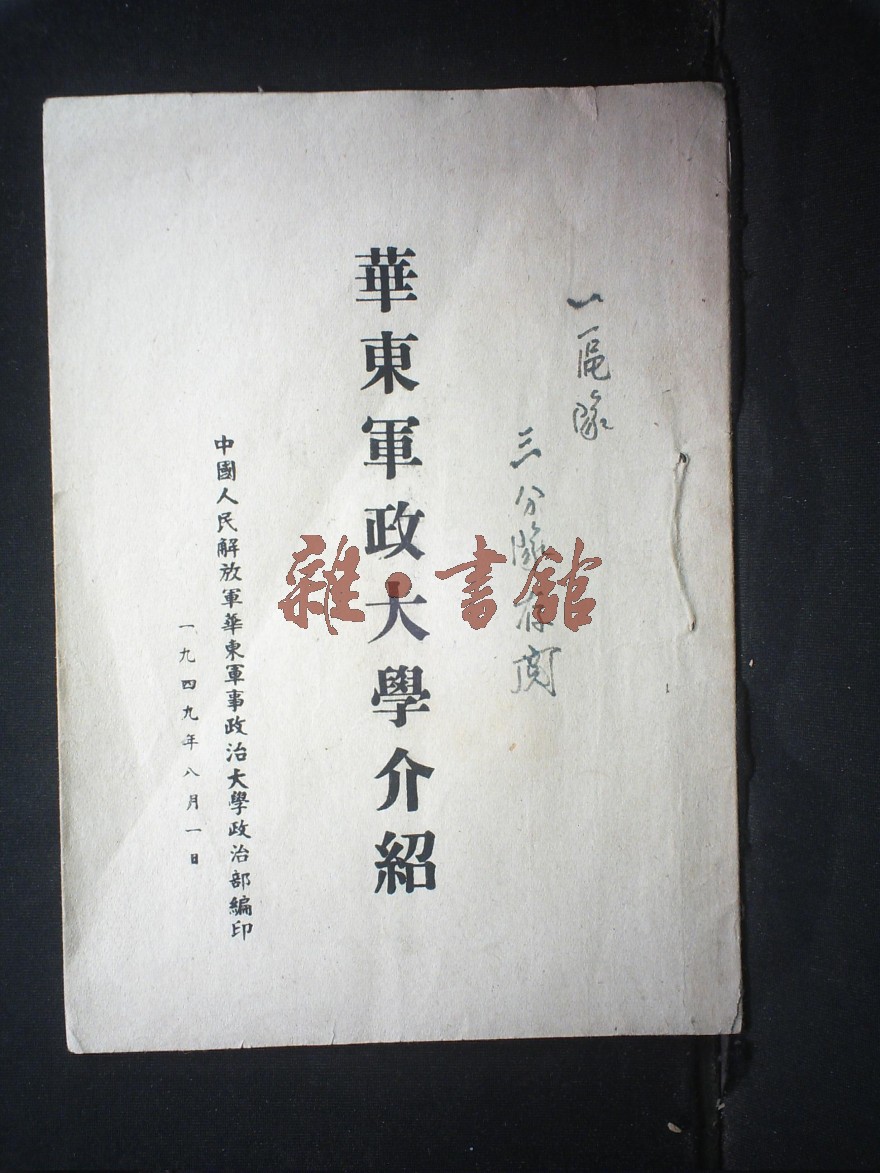 一區隊
三分隊存閱
華東軍政大學介紹
中國人民解放軍華東軍事政治大學政治部編印
一九四九年八月一日
雜·書館